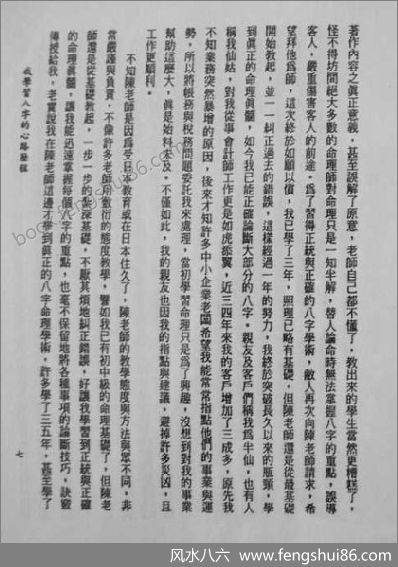 著作內容之眞正意義，甚至誤解了原意，老師自己都不懂了，教出來的學生當然更糟糕了，
怪不得坊間絕大多數的命理師對命理只是一知半解，替人論命時無法掌握八字的重點，誤導
客人，嚴重傷害客人的前途。爲了習得正統與正確的八字學術，敝人再次向陳老師請求，希
望拜他爲師，這次終於如願以償，我已學了三年，照理已略有基礎，但陳老師還是從最基礎
開始教起，並一一糾正過去的錯誤，這樣經過一年的努力，我終於突破長久以來的瓶頸，學
到眞正的命理眞髓，如今我已能正確論斷大部分的八字。親友及客戶們稱我爲半仙，也有人
稱我仙姑，對我從事會計師工作更是如虎添翼，近三四年來我的客戶增加了三成多，原先我
不知業務突然暴增的原因，後來才知許多中小企業老闆希望我能常常指點他們的事業與運
勢，所以將帳務與稅務問題委託我來處理，當初學習命理只是爲了興趣，沒想到對我的事業
幫助這麼大，眞是始料未及。不僅如此，我的親友也因我的指點與建議，避掉許多災因，且
工作更順利。
不知陳老師是因爲受日本教育或在日本住久了，陳老師的教學態度與方法與眾不同，非
常嚴謹與負責，不像許多老師用敷衍的態度教學，譬如我已有初中級的命理基礎了，但陳老
師還是從基礎教起，一步一步的紮深基礎，不厭其煩地糾正錯誤，好讓我學習到正統與正確
的命理眞髓，讓我能迅速掌握每個八字的重點，也毫不保留地將各種事項的論斷技巧、訣竅
傳授給我，老實說我在陳老師這邊才學到眞正的八字命理學術，許多學了三五年，甚至學了
我學習八字的心路歷程
七
book.fengshui86.com
风水八六 - www.fengshui86.com